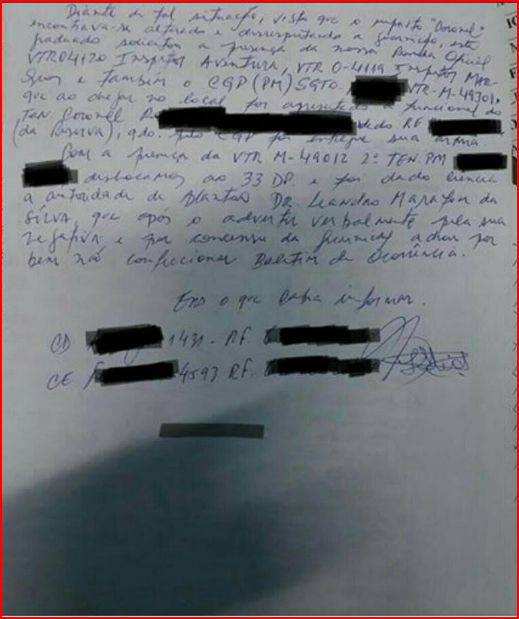 Diante de tal situação, visto que o suposto "Coronel"
encontrava-se alterado e desrespeitando a guarnição, este
graduado solicitou a presença da nossa Ronda Oficial
VTR 04120 Inspetor Aventura, VTR 0-4119 Inspetor MAR-
e também o CGP (PM) SGTO. VTR-M-49301,
que ao chegar no local foi apresentado a funcional do
Ten. Coronel RE
(da Reserva), pelo CGP foi entregue sua arma
Com a presença da VTR M-49012 2º TEN. PM
deslocamos ao 33 DP. e foi dado ciencia
a autoridade de plantão DR. Leandro da
Silva, que após o advertir verbalmente pela sua
negativa, e por consenso da guarnição achou por
bem não confeccionar Boletim de Ocorrência.
Era o que cabia informar.
CD 1431 - RF.
CE 4593 RF.